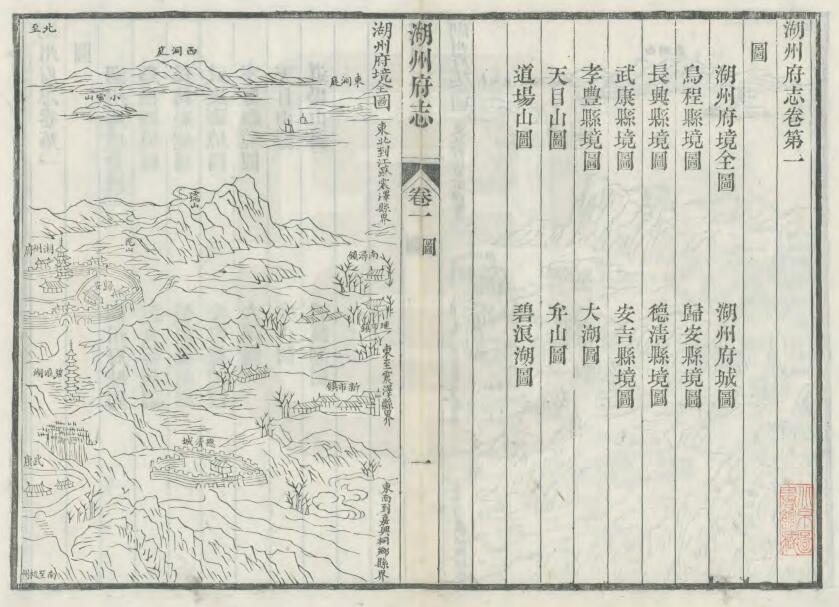 湖州府志卷第一
圖
湖州府境全圖
湖州府城圖
烏程縣境圖
歸安縣境圖
長興縣境圖
德清縣境圖
武康縣境圖
安吉縣境圖
孝豐縣境圖
大湖圖
天目山圖
弁山圖
道場山圖
碧浪湖圖
湖州府志
卷一
圖
一
湖州府境全圖
東北到江蘇震澤縣界
東至震澤縣界
東南到嘉興桐鄉縣界
北至
西洞庭
東洞庭
小雷山
湖州府
歸安
南潯鎮
碧浪湖
新市鎮
德清城
武康